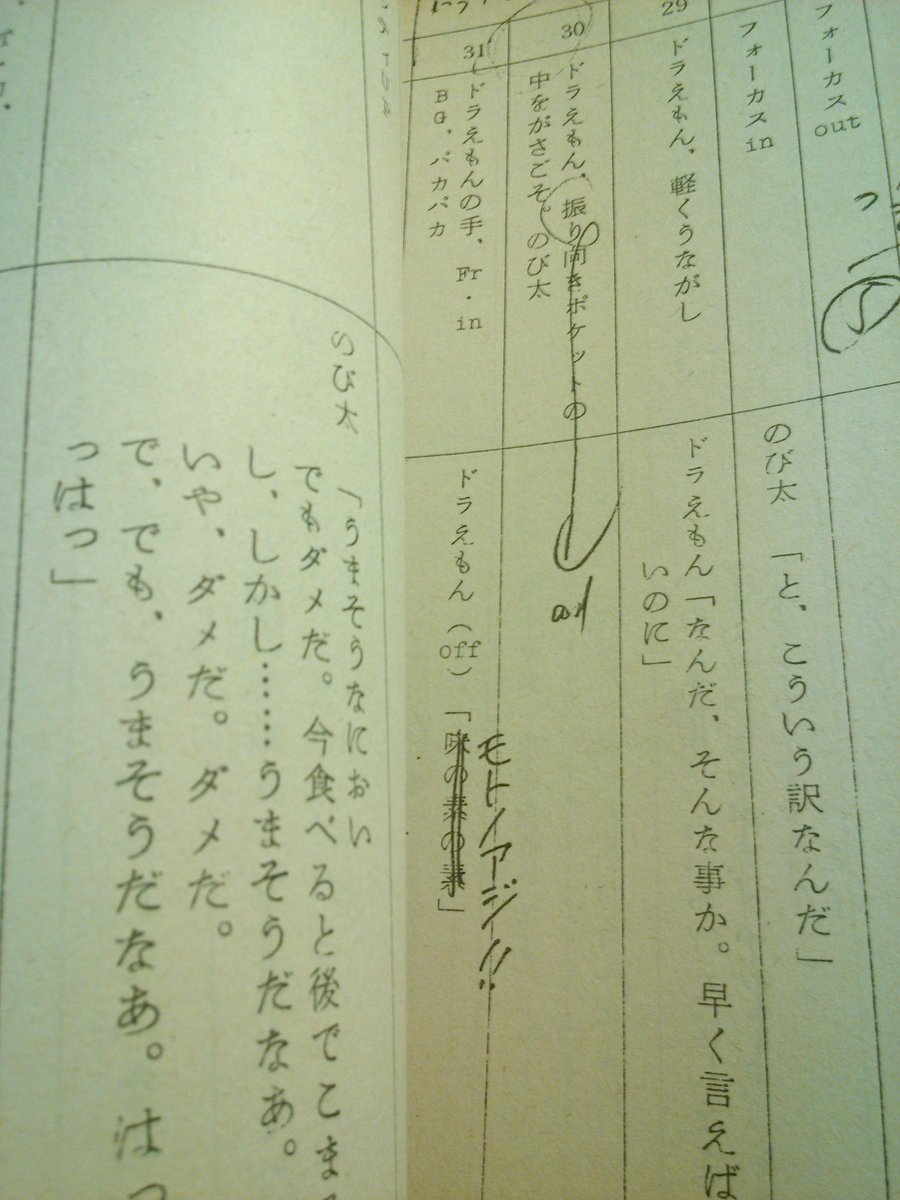 フォーカスout
フォーカスin
のび太「と、こういう訳なんだ」
29
ドラえもん、軽くうながし
ドラえもん「なんだ、そんな事か。早く言えば
いのに」
30
ドラえもん、振り向きポケットの
中をがさごそ。のび太
ad
31
ドラえもんの手、Fr・in
BG、パカパカ
ドラえもん(off)「味の素の素」
モトノアジ!!
のび太「うまそうなにおい
でもダメだ。今食べると後でこま
し、しかし……うまそうだなあ。
いや、ダメだ。ダメだ。
で、でも、うまそうだなあ。はっ
っはっ」